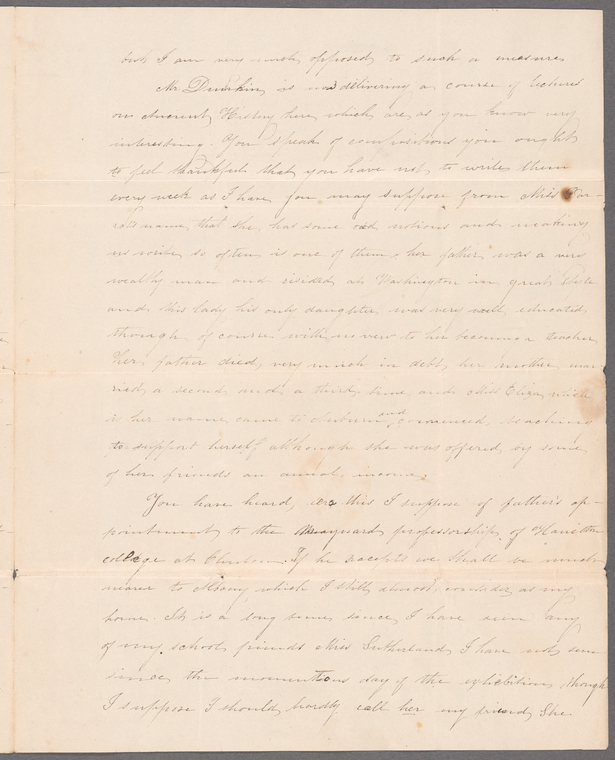 but I am very much opposed to such a measure
Mr Dunkin is now delivering a course of lectures
on Ancient History here, which are, as you know very
interesting. You speak of compositions you ought
to feel thankful that you have not to write them
every week as I have you may suppose from Miss
name, that she has some odd notions and making
us write so often is one of them, her father was a very
wealthy man and resided at Washington in great style
and this lady his only daughter, was very well educated
though of course with no view to her becoming a teacher
Her father died, very much in debt, her mother mar-
ried a second and a third time and Miss Eliza, which
is her name came to Auburn and commenced teaching
to support herself although she was offered by some
of her friends an annual income.
You have heard, ere this I suppose of father's ap-
pointment to the Maynard professorship of Hamilton
college at Clinton. If he accepts we shall be much
nearer to Albany which I still almost consider as my
home. It is a long time since I have seen any
of my school friends Miss Sutherland I have not seen
since the momentous day of the exhibition, though
I suppose I should hardly call her my friend, She